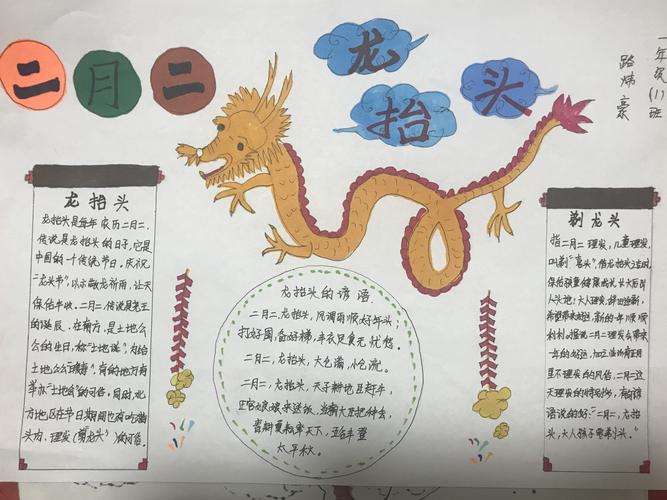 二月二
龙抬头
一年级(1)班
路炜豪
龙抬头
龙抬头是每年农历二月二,
传说是龙抬头的日子,它是
中国的一个传统节日。庆祝
“龙头节”,以示敬龙祈雨,让天
保佑丰收。二月二,传说是尧王
的诞辰。在南方,是土地公
公的生日,称“土地诞”,为给
土地公公“暖寿”,有的地方有
举办“土地会”的习俗。同时,北
方地区在节日期间也有吃猪
头肉、理发(剪龙头)的习俗。
龙抬头的谚语
二月二,龙抬头,风调雨顺好年头;
打好囤,备好梯,丰衣足食无忧愁。
二月二,龙抬头,大仓满,小仓流。
二月二,龙抬头,天子耕地臣赶牛,
正宫娘娘来送饭,当朝大臣把种丢,
春耕夏耘率天下,五谷丰登
太平秋。
剃龙头
指二月二理发,儿童理发,
叫剃“喜头”,借龙抬头之时,
保佑孩童健康成长,长大后出
人头地;大人理发,辞旧迎新,
希望带来好运,新的一年顺顺
利利。据说二月二理发会带来
一年的好运,加之旧时正月
里不理发的风俗,二月二这
天理发的特别多,有俗
语说的好:“二月二,龙抬
头,大人孩子要剃头。”